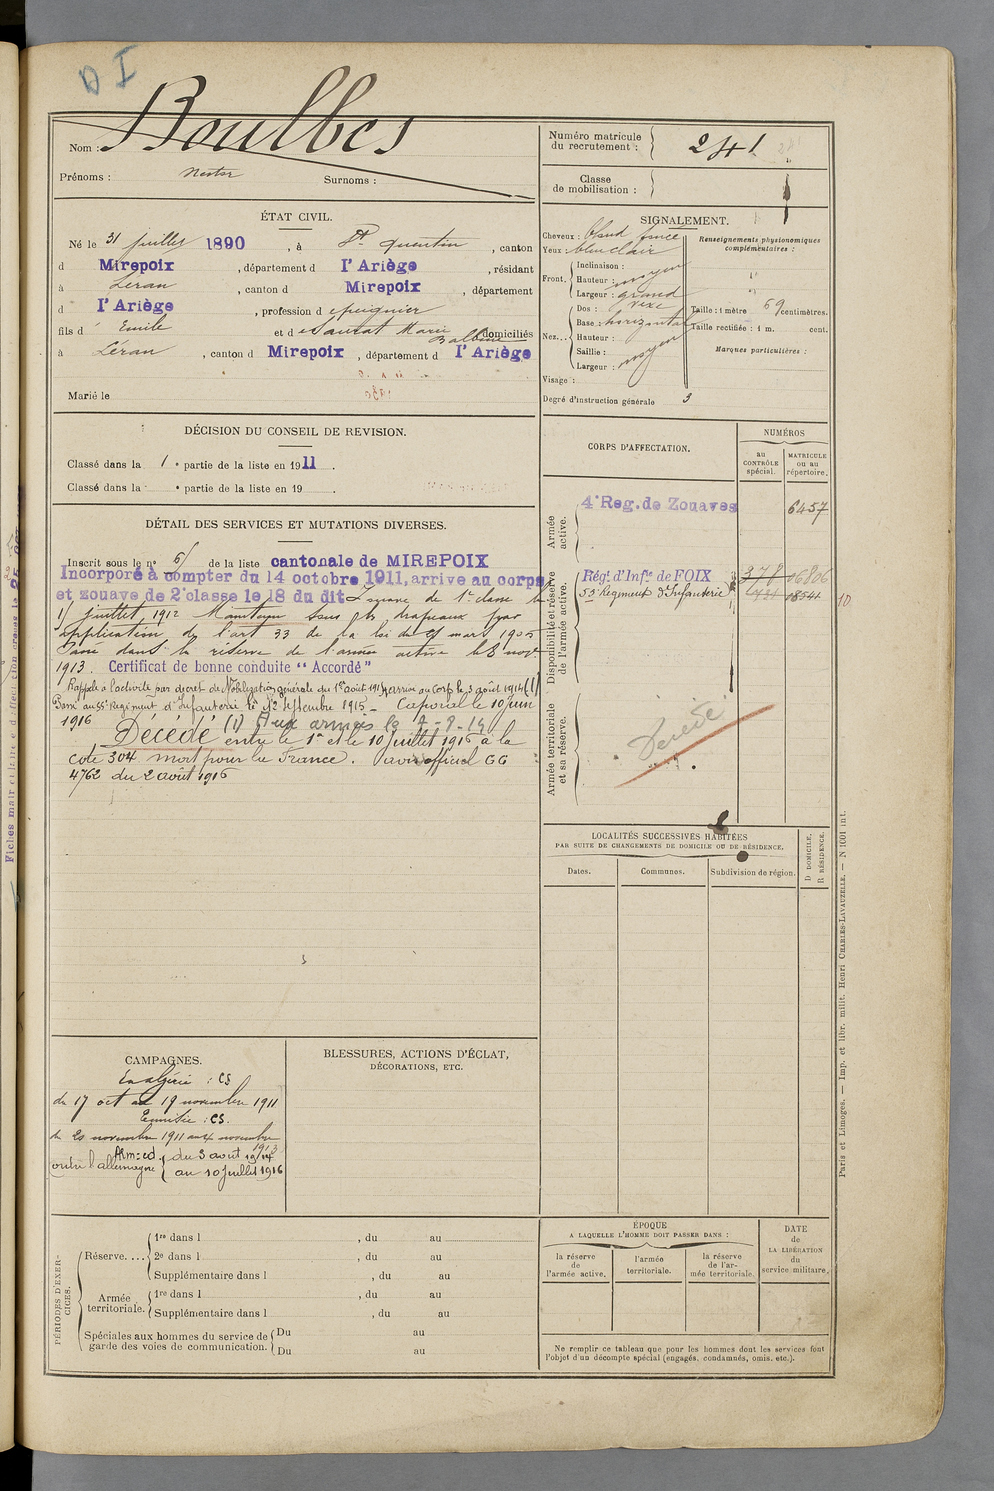 D I
Nom : Boulbes
Prénoms : Nestor Surnoms :
Numéro matricule du recrutement : 241
Classe de mobilisation :
ÉTAT CIVIL.
Né le 31 juillet 1890, à St Quentin, canton
d Mirepoix, département d l'Ariège, résidant
à Léran, canton d Mirepoix, département
d l'Ariège, profession d épicier
fils d' Emile et d e Saurat Marie Balbine domiciliés
à Léran, canton d Mirepoix, département d l'Ariège
Marié le
DÉCISION DU CONSEIL DE REVISION.
Classé dans la 1e partie de la liste en 1911.
Classé dans la e partie de la liste en 19
DÉTAIL DES SERVICES ET MUTATIONS DIVERSES.
Inscrit sous le no 61 de la liste cantonale de MIREPOIX
Incorporé à compter du 14 octobre 1911, arrive au corps
et zouave de 2e classe le 18 du dit Zouave de 1e classe le
1er juillet 1912 Maintenu sous les drapeaux par
application de l'art 33 de la loi du 21 mars 1905
Passé dans la réserve de l'armée active le 8 nov.
1913. Certificat de bonne conduite "Accordé"
Rappelé à l'activité par décret de Mobilisation générale du 1er août 1914, arrivé au Corps le 3 août 1914 (1)
Passé au 53e Régiment d'Infanterie le 12 Septembre 1915 - Caporal le 10 juin
1916 (1) Aux armées le 7-8-14
Décédé entre le 1er et le 10 juillet 1916 à la
cote 304 mort pour la France. avis officiel GG
4762 du 2 août 1916
CAMPAGNES.
En algérie : CS
du 17 oct au 19 novembre 1911
Tunisie : CS.
du 20 novembre 1911 au 4 novembre
1913
contre l'allemagne du 3 août 1914
au 10 Juillet 1916
BLESSURES, ACTIONS D'ÉCLAT,
DÉCORATIONS, ETC.
PÉRIODES D'EXERCICES.
Réserve.... 1re dans l , du au
2e dans l , du au
Supplémentaire dans l , du au
Armée territoriale. 1re dans l , du au
Supplémentaire dans l , du au
Spéciales aux hommes du service de garde des voies de communication. Du au
Du au
SIGNALEMENT.
Cheveux : blond foncé
Yeux bleu clair
Front. Inclinaison :
Hauteur : moyen
Largeur : grand
Nez... Dos : vexe
Base : horizontal
Hauteur :
Saillie : moyen
Largeur :
Visage :
Degré d'instruction générale 3
Renseignements physionomiques complémentaires :
Taille : 1 mètre 69 centimètres.
Taille rectifiée : 1 m. cent.
Marques particulières :
CORPS D'AFFECTATION.
NUMÉROS
au CONTRÔLE spécial.
MATRICULE ou au répertoire.
Armée active.
4e Reg. de Zouaves 6457
Disponibilité et réserve de l'armée active.
Régt. d'Infie de FOIX 378 06806
53 Régiment d'Infanterie 18544
10
Armée territoriale et sa réserve.
Décédé
LOCALITÉS SUCCESSIVES HABITÉES
PAR SUITE DE CHANGEMENTS DE DOMICILE OU DE RÉSIDENCE.
Dates. Communes. Subdivision de région. D DOMICILE, R RÉSIDENCE.
ÉPOQUE
A LAQUELLE L'HOMME DOIT PASSER DANS :
la réserve de l'armée active.
l'armée territoriale.
la réserve de l'armée territoriale.
DATE DE LA LIBÉRATION du service militaire.
Ne remplir ce tableau que pour les hommes dont les services font
l'objet d'un décompte spécial (engagés, condamnés, omis, etc.).
Paris et Limoges. — Imp. et libr. milit. Henri CHARLES-LAVAUZELLE. — N 1001 int.